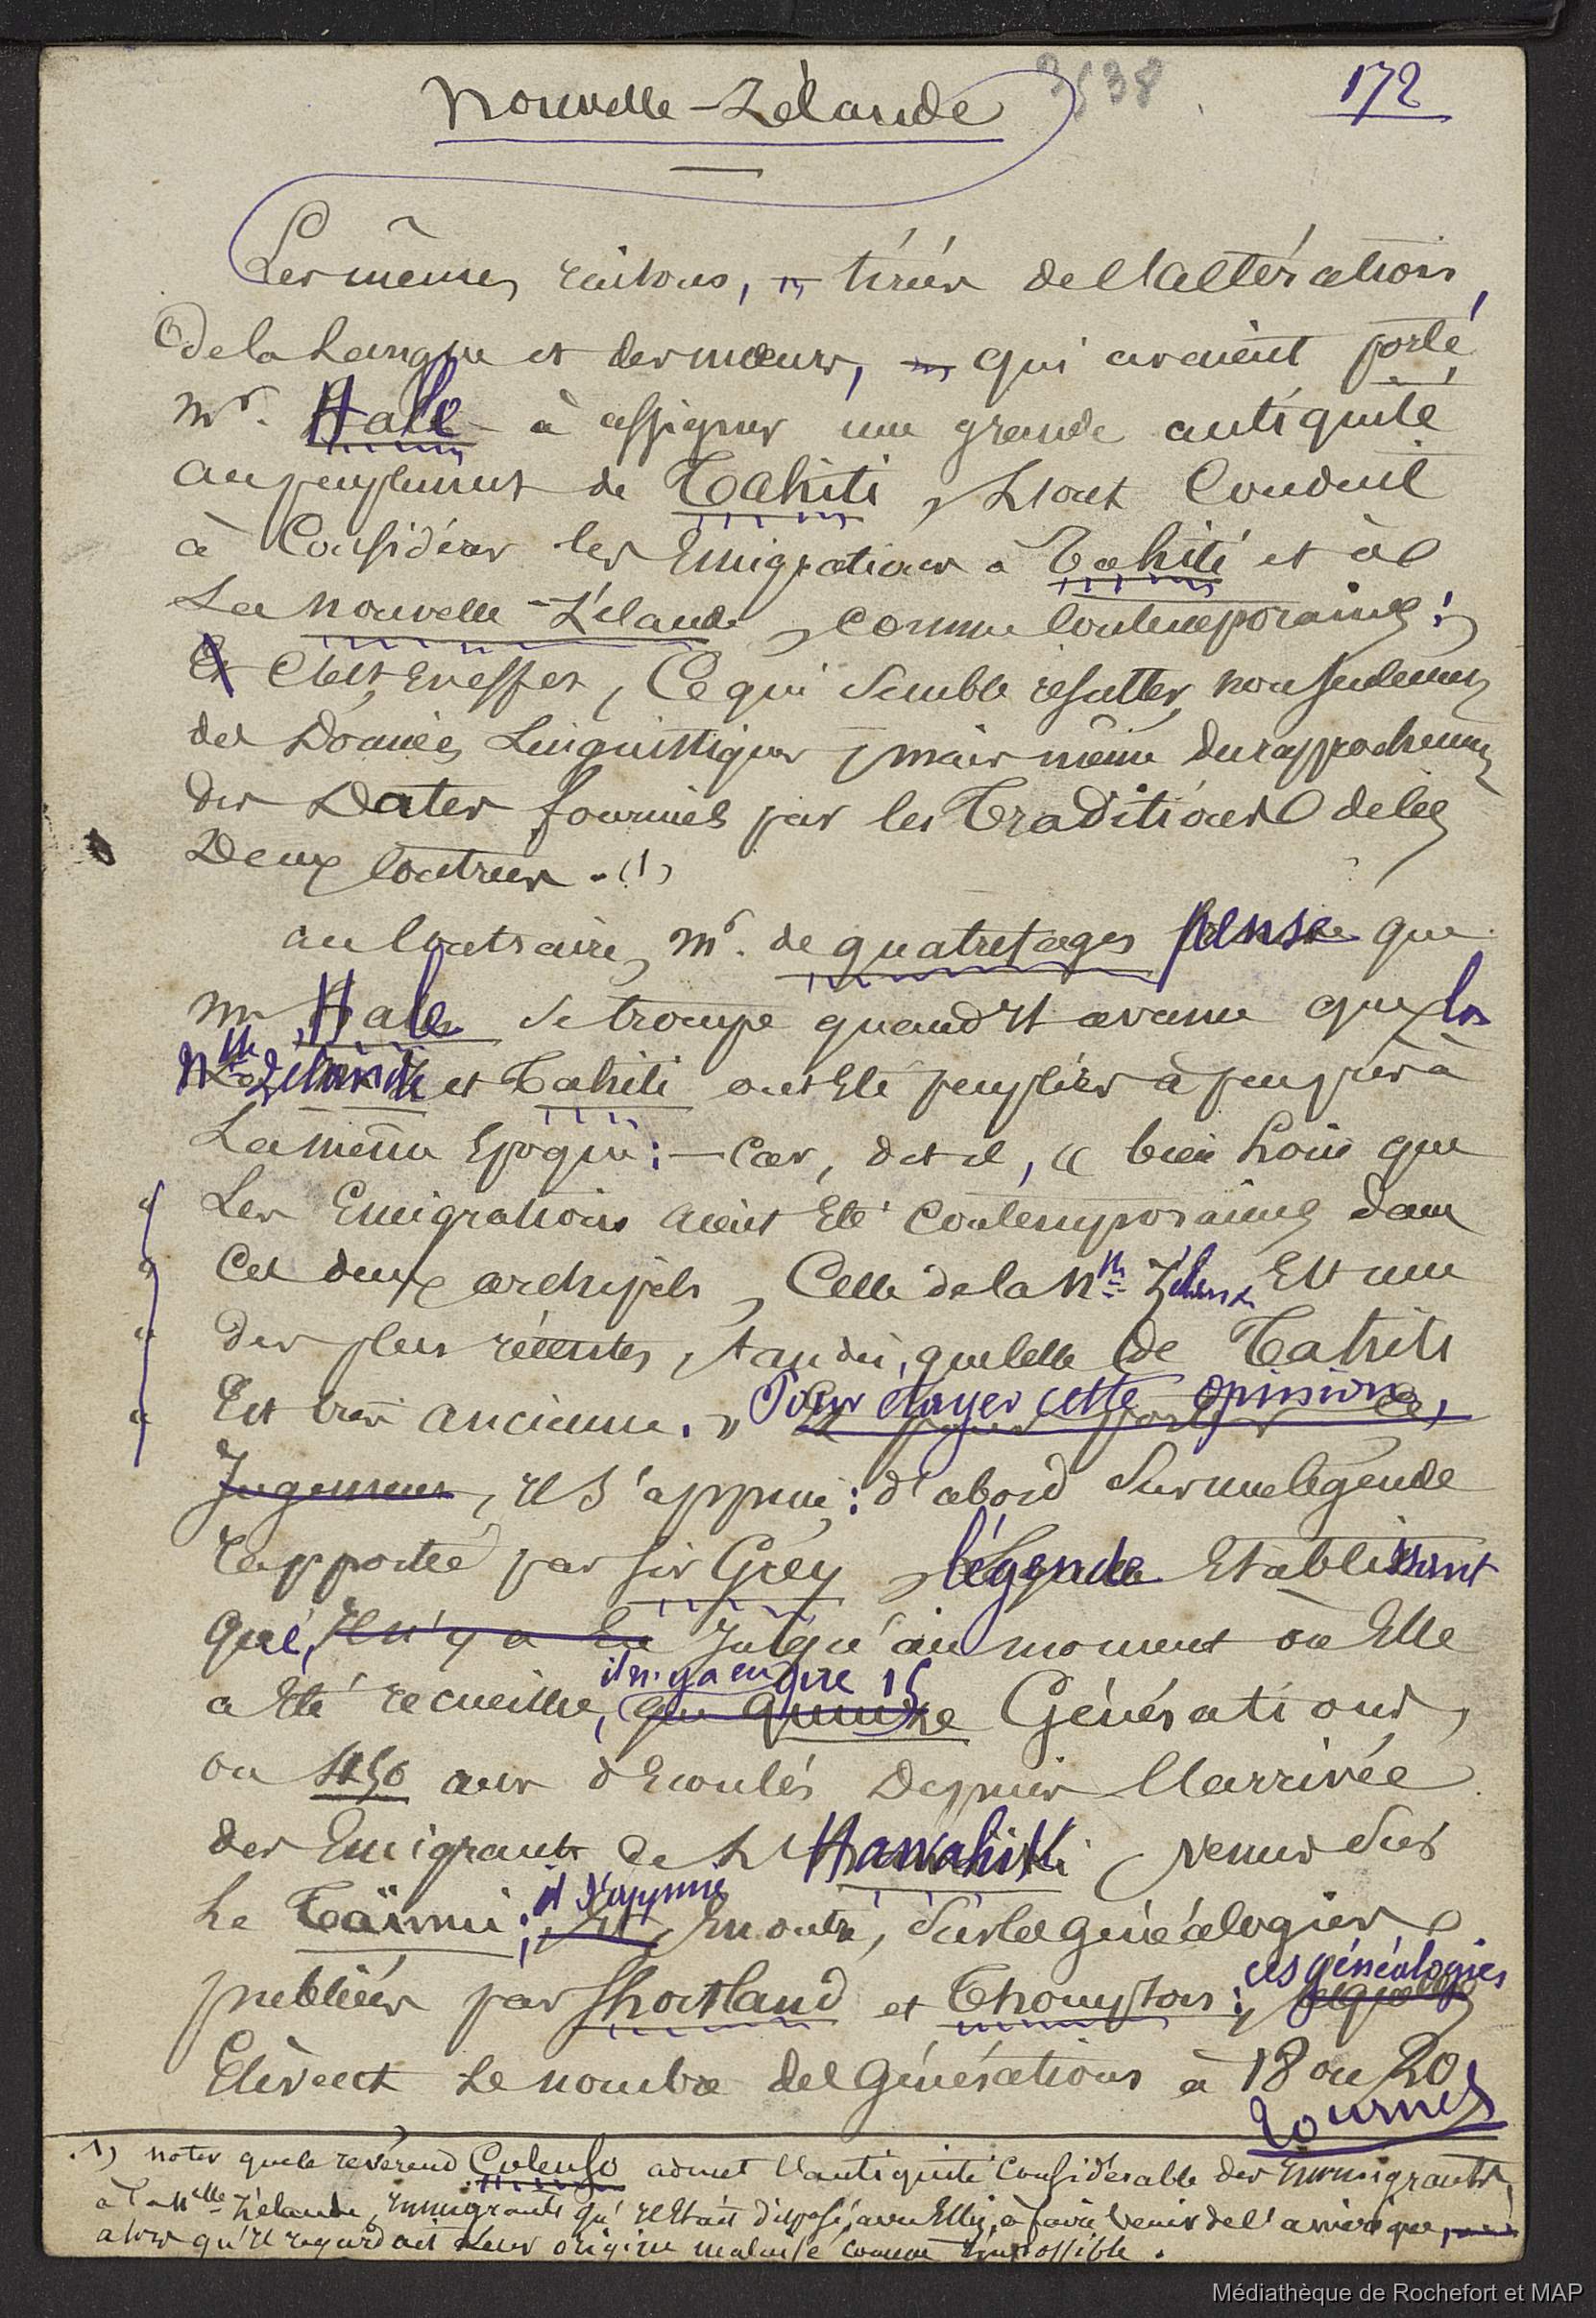 3538
172
Nouvelle-Zélande
Les mêmes raisons, tirées de l'altération
de la langue et des mœurs, qui avaient porté
Mr. Hale à assigner une grande antiquité
au peuplement de Tahiti, l'ont conduit
à considérer les Emigrations à Tahiti et à
la Nouvelle-Zélande, comme contemporaines:
Et C'est, en effet, Ce qui semble résulter, non seulement
des Données Linguistiques, mais même du rapprochement
des Dates fournies par les Traditions de ces
Deux contrées. (1)
au contraire, Mr. de quatrefages pense que
Mr Hale se trompe quand il avance que la
Nlle Zélande et Tahiti ont été peuplées à peu près à
la même époque: — Car, dit-il, « bien loin que
« les Emigrations aient été contemporaines dans
« ces deux archipels, Celle de la Nlle Zélande Est une
« des plus récentes, tandis que celle de Tahiti
« Est très ancienne. » Pour étayer cette opinion,
Jugement, il s'appuie: d'abord sur une légende
rapportée par Sir Grey, légende établissant
que, Il n'y a eu Jusqu'au moment où Elle
a été recueillie, il n'y a eu que 15
que quinze Générations,
ou 450 ans d'écoulés Depuis l'arrivée
des Emigrants de l'Hawahiki venus sur
le Taïnui; il s'appuie
Et, En outre, sur les généalogies
publiées par Shortland et Thompson: ces généalogies
Elèvent le nombre des générations à 18 ou 20
tournez
(1) noter que le révérend Colenso admet l'antiquité Considérable des Emmigrants
à la Nlle Zélande, Emmigrants qu'il était disposé, avec Ellis, à faire venir de l'amérique,
alors qu'il regardait leur origine malaise comme impossible.
Médiathèque de Rochefort et MAP